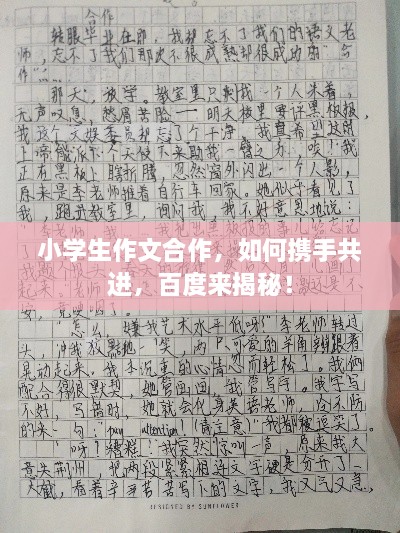 合作
转眼毕业在即，我却忘不了我们的语文老
师，忘不了我们那次不很成熟却很成功的“合
作”……
那天，放学。教室里只剩我一个人呆着，
无声叹息，愁眉苦脸——明天板里要评黑板报，
我这个文娱委员却忘了个干净。我真希望这时
上帝能派下个天使下来助我一臂之力。唉！我
正在黑板上瞎折腾，忽然窗外闪出一个人影，
原来是李老师推着自行车回家。她似乎看见了
我，跑进教室，询问我，我不好意思地说：
小学生作文合作，如何携手共
进，百度来揭秘！
“怎么，嫌我艺术水平低呀？”李老师转过
头，冲我狡黠一笑，两只可爱的羊角辫跟着
晃动起来。我手沉重的心情忽而轻松了。我俩
配合得很默契，她管画画，我管写字。我字写
不好，写错时，她就会化身英语老师，冷不防
的来一句：“pay attention！（请注意）”我都被逗笑了。
“呀？糟糕！”我突然惊叫一声，原来我大
意失荆州，把两段紧紧相连文字硬是分开了一
大截，看着辛辛苦苦写下的文字，我又气又急，
DESIGNED BY SUNFLOWER